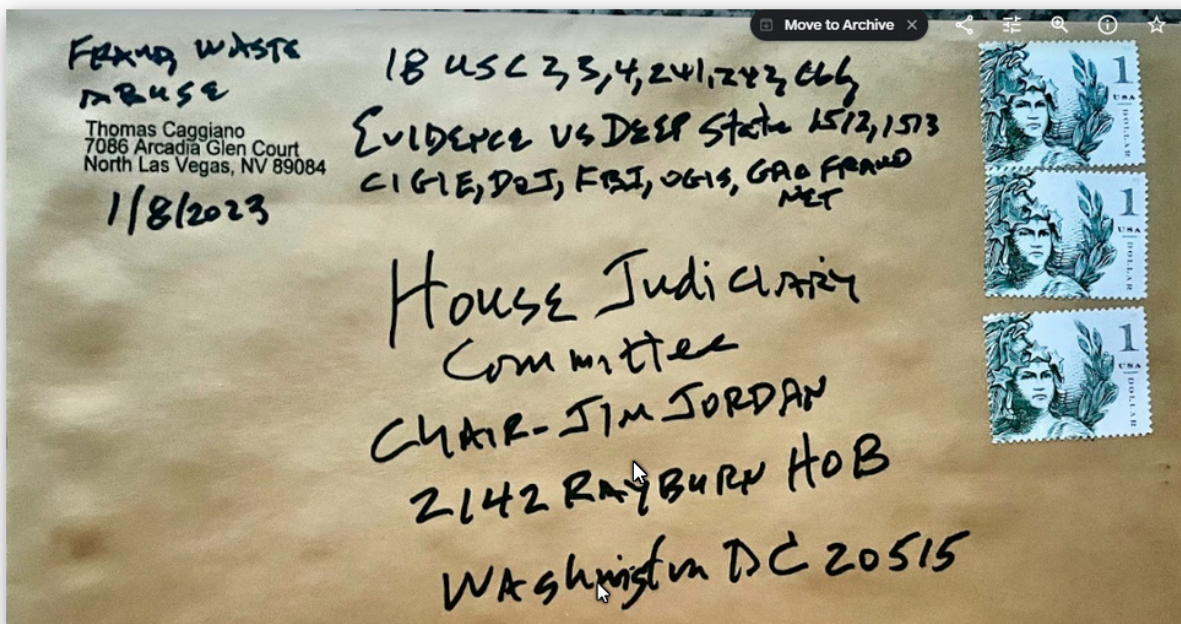 Move to Archive
FRAUD, WASTE
ABUSE
Thomas Caggiano
7086 Arcadia Glen Court
North Las Vegas, NV 89084
1/8/2023
18 USC 2, 3, 4, 241, 242,
EVIDENCE VS DEEP State 1512, 1513
CIGIE, DOJ, FBI, OGIS, GAO FRAUD
NET
House Judiciary
Committee
CHAIR-JIM JORDAN
2142 RAYBURN HOB
Washington DC 20515
1
USA
DOLLAR
1
USA
DOLLAR
1
USA
DOLLAR